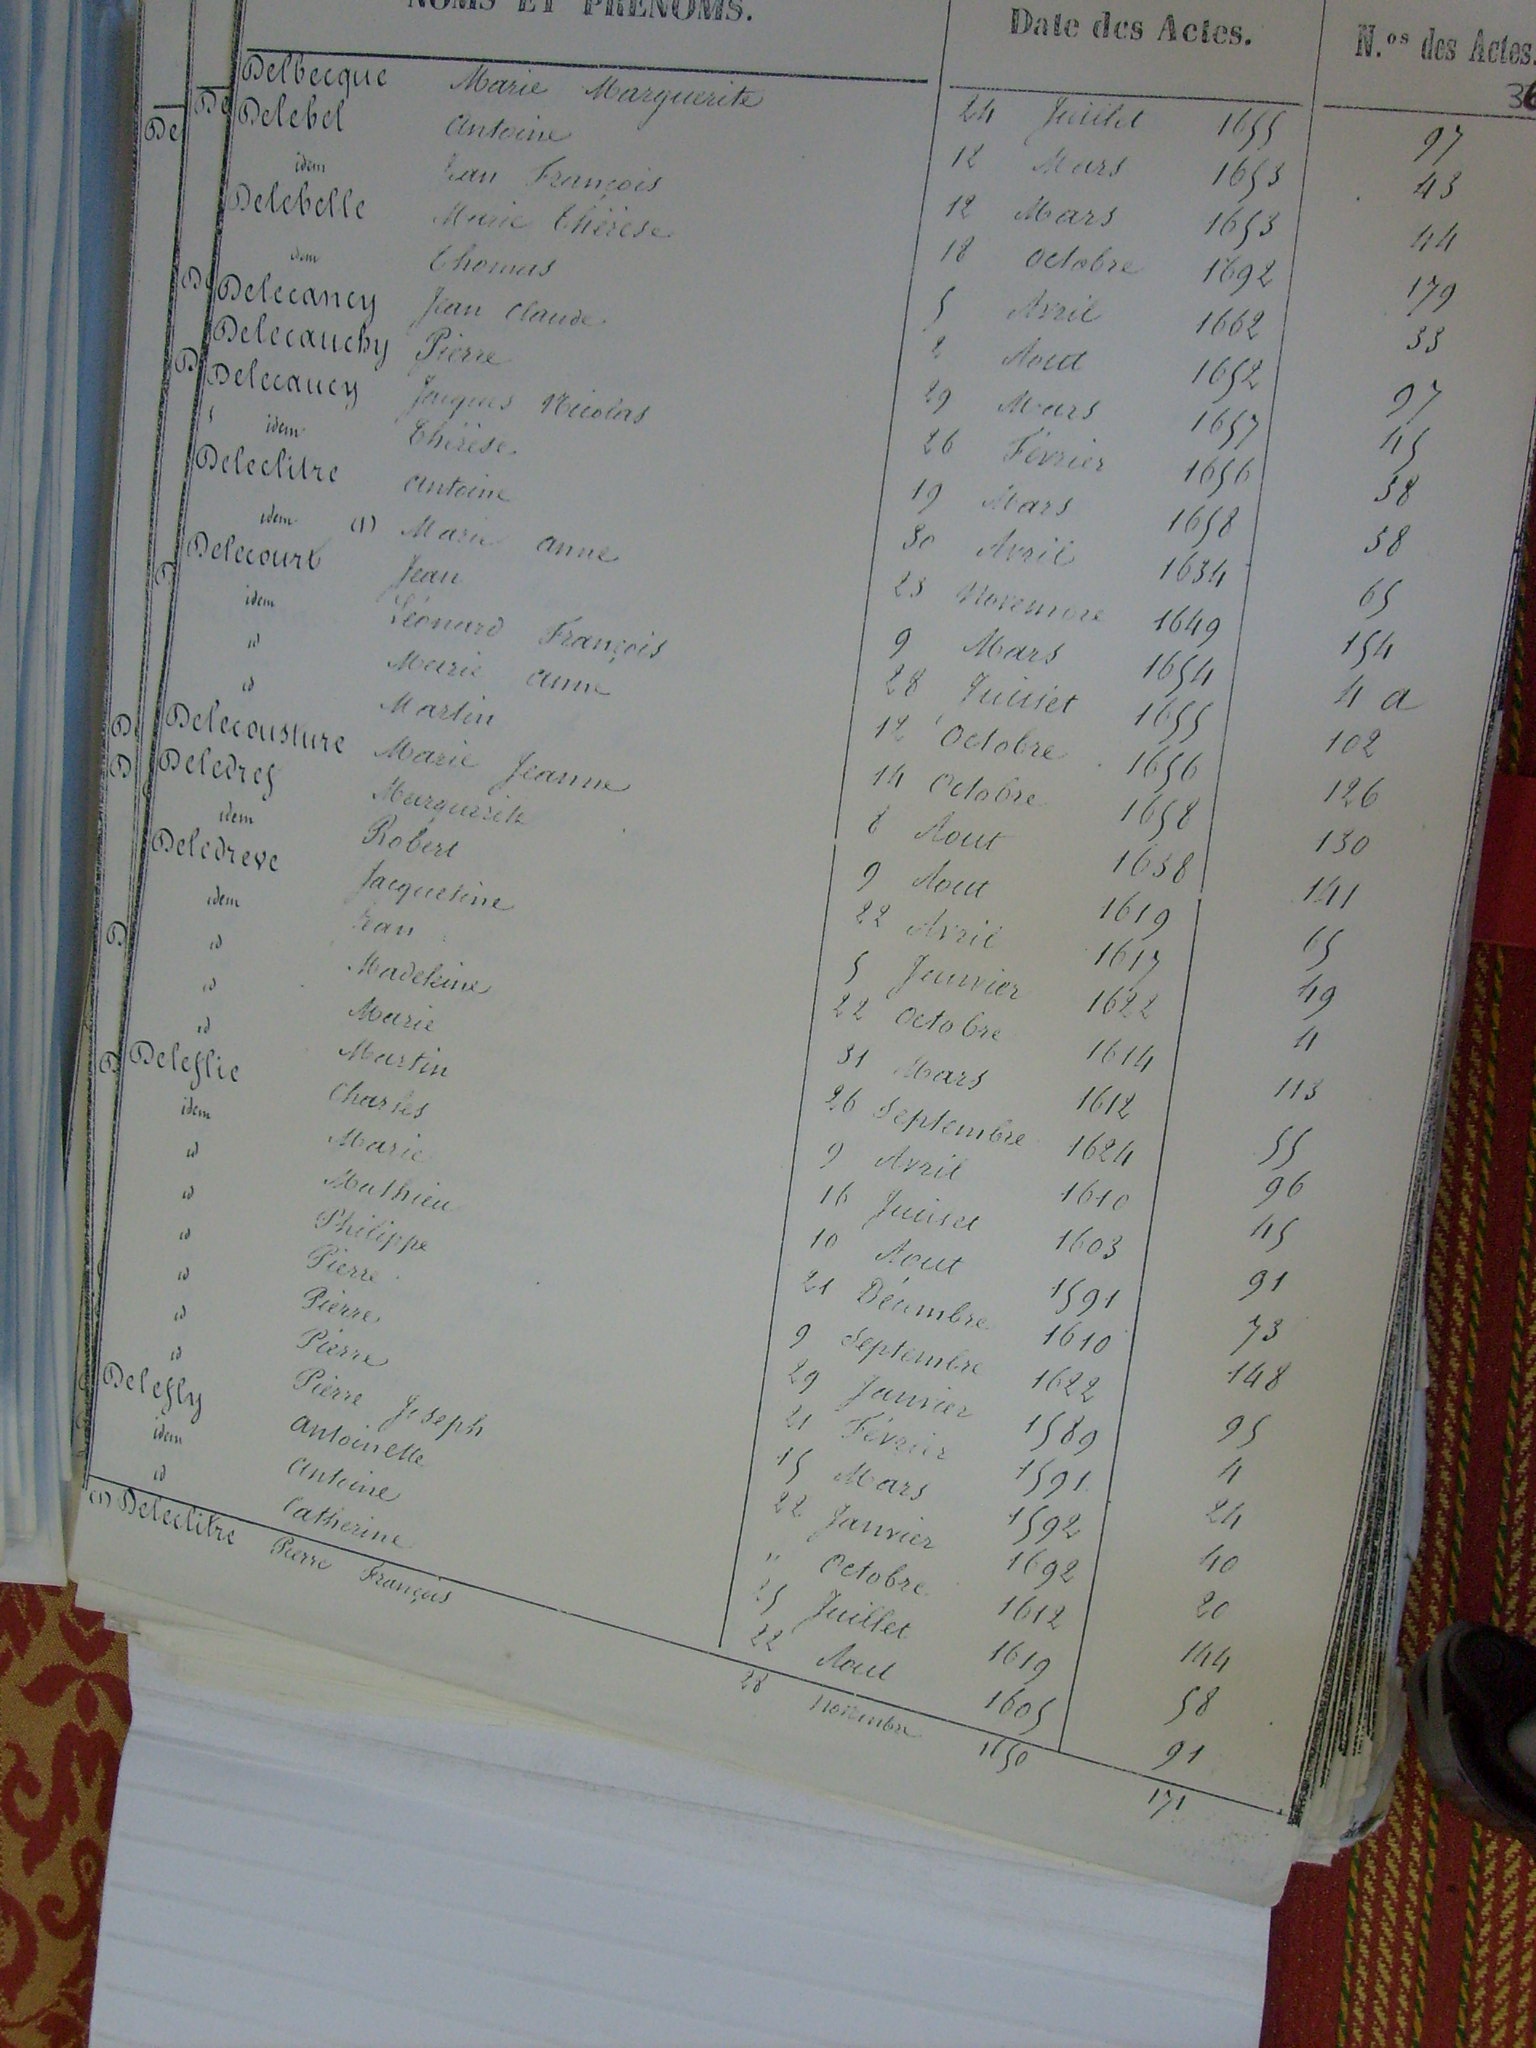 NOMS ET PRÉNOMS. Date des Actes. N.os des Actes.
36
Delbecque Marie Marguerite 24 Juillet 1655 97
Delebel Antoine 12 Mars 1653 43
idem Jean François 12 Mars 1653 44
Delebelle Marie Thérèse 18 Octobre 1692 179
idem Thomas 5 Avril 1662 33
Delecancy Jean Claude 2 Aout 1652 97
Delecauchy Pierre 29 Mars 1657 45
Delecaucy Jacques Nicolas 26 Février 1656 38
idem Thérèse 19 Mars 1658 58
Deleclitre Antoine 30 Avril 1634 65
idem (1) Marie Anne 23 Novembre 1649 154
Delecourt Jean 9 Mars 1654 4 a
idem Léonard François 28 Juillet 1655 102
id Marie Anne 12 Octobre 1656 126
id Martin 14 Octobre 1658 130
Delecousture Marie Jeanne 8 Aout 1638 141
Deledref Marguerite 9 Aout 1619 65
idem Robert 22 Avril 1617 49
Deledreve Jacqueline 5 Janvier 1622 4
idem Jean 22 Octobre 1614 113
id Madeleine 31 Mars 1612 55
id Marie 26 Septembre 1624 96
id Martin 9 Avril 1610 45
Deleflie Charles 16 Juillet 1603 91
idem Marie 10 Aout 1591 73
id Mathieu 21 Décembre 1610 148
id Philippe 9 Septembre 1622 95
id Pierre 29 Janvier 1589 4
id Pierre 21 Février 1591 24
id Pierre 15 Mars 1592 40
id Pierre Joseph 22 Janvier 1692 20
Delefly Antoinette " Octobre 1612 144
idem Antoine 25 Juillet 1619 58
id Catherine 22 Aout 1605 91
(1) Deleclitre Pierre François 28 novembre 1650 171